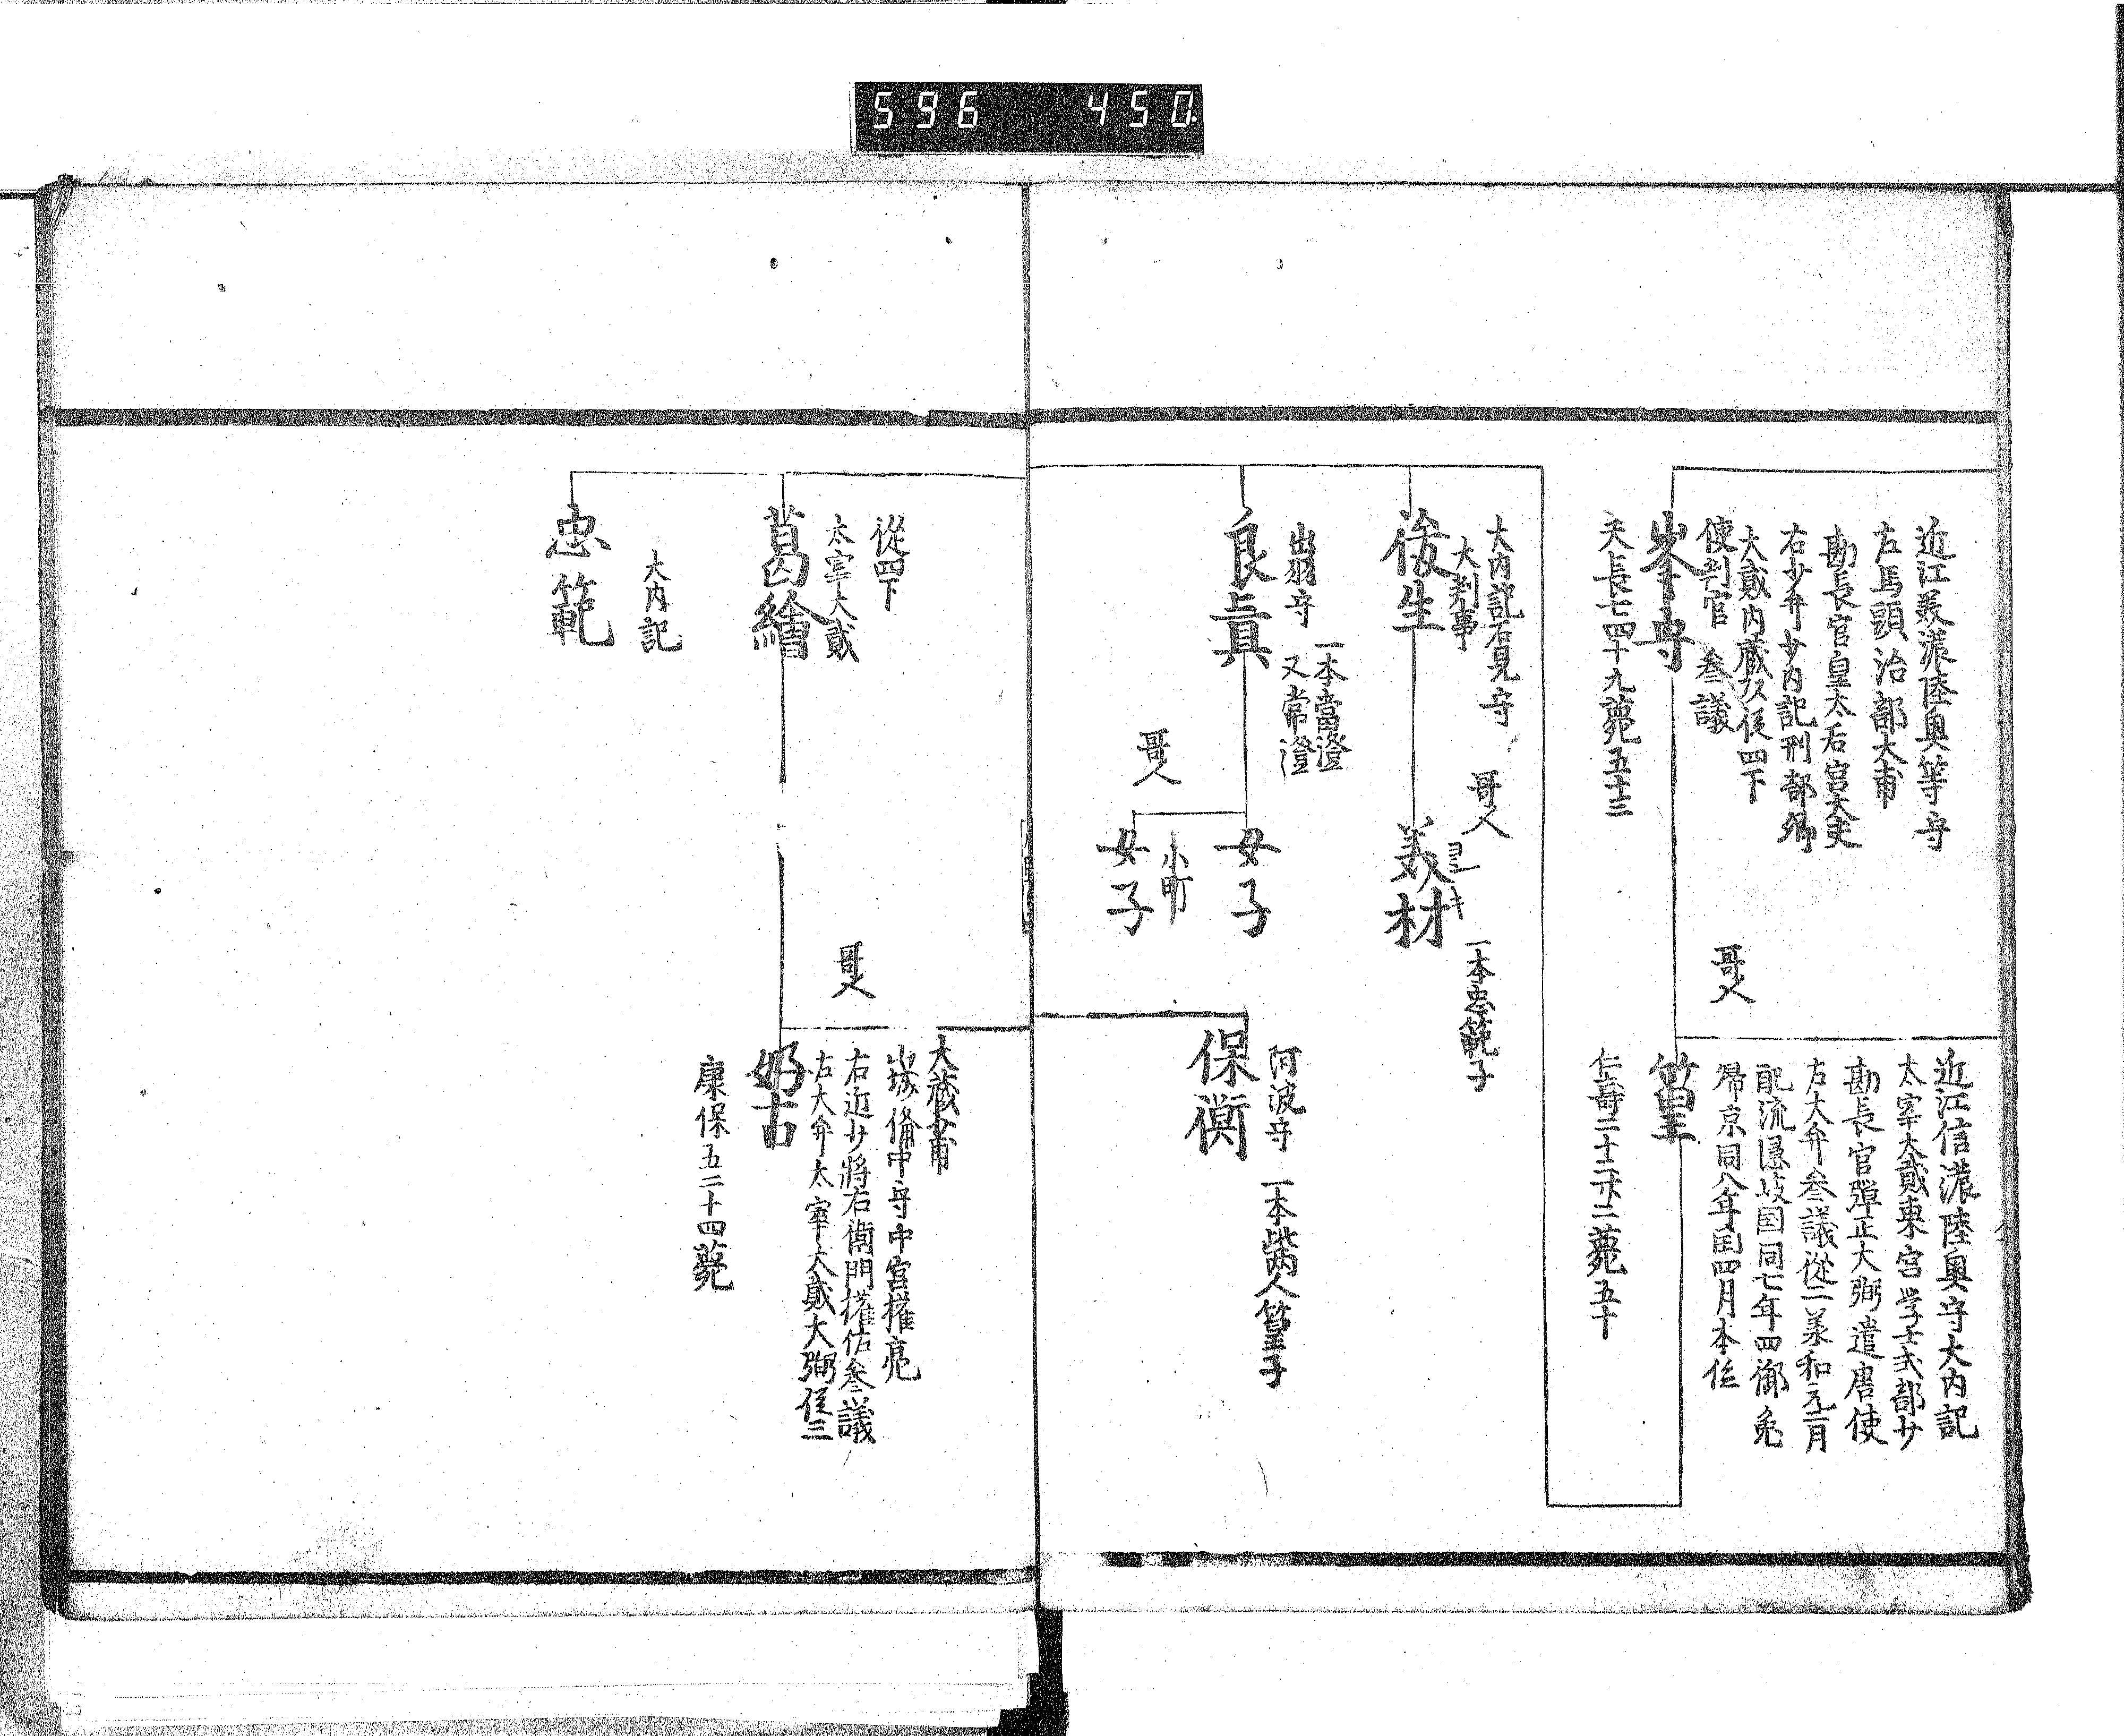 596 450
近江美濃陸奥等守
左馬頭治部大甫
勘長官皇太后宮大夫
右少弁少内記刑部卿
大貮内蔵頭従四下
使判官 叅議
岑守
天長七四十九薨五十三
哥人
近江信濃陸奥守大内記
太宰大貮東宮学士式部少
勘長官弾正大弼遣唐使
左大弁叅議従三美和元二月
配流隠岐国同七年四御免
帰京同八年閏四月本位
篁
仁壽二十二廿二薨五十
大内記石見守
大判事
俊生
哥人
ヨシキ
美材
一本忠範子
出羽守
一本當澄
又常澄
良眞
女子
哥人
小町
女子
阿波守
一本紫両人篁子
保衡
従四下
太宰大貮
葛繪
哥人
大蔵少甫
山城備中守中宮権亮
右近少将右衛門権佐叅議
左大弁太宰大貮大弼従三
好古
康保五二十四薨
大内記
忠範